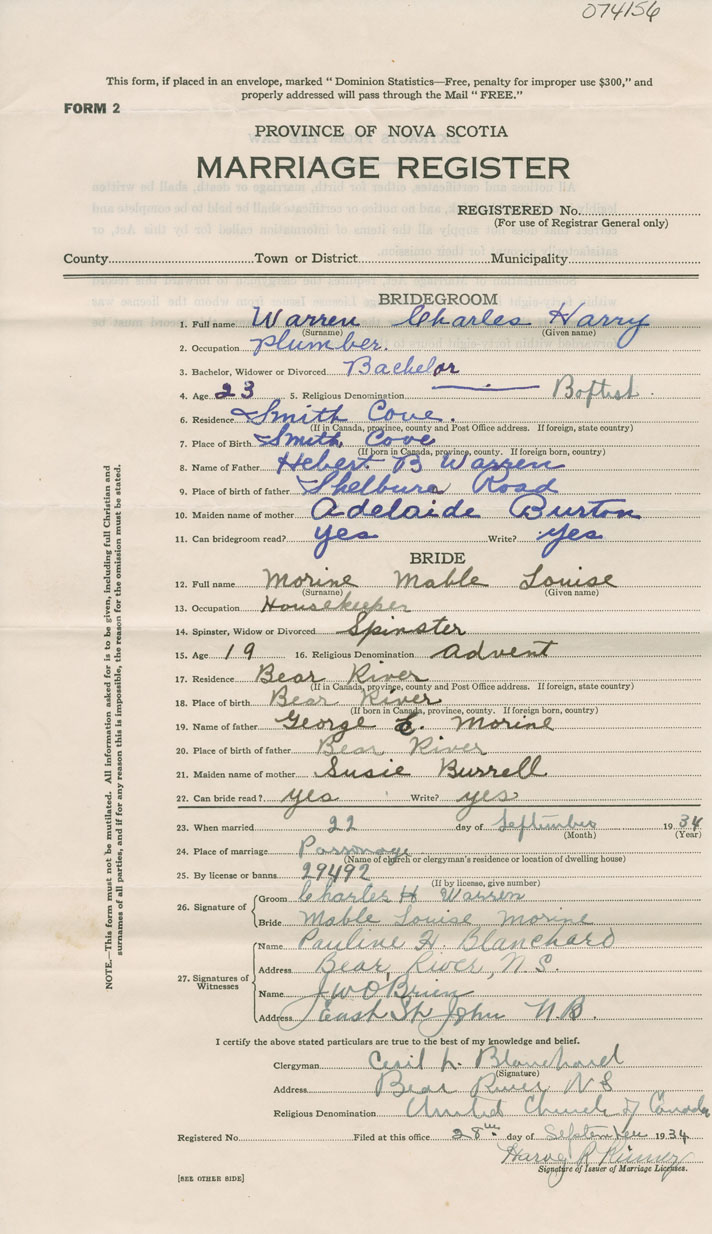 074156
This form, if placed in an envelope, marked "Dominion Statistics—Free, penalty for improper use $300," and
properly addressed will pass through the Mail "FREE."
FORM 2
PROVINCE OF NOVA SCOTIA
MARRIAGE REGISTER
REGISTERED No.
(For use of Registrar General only)
County Town or District Municipality
BRIDEGROOM
1. Full name Warren Charles Harry
(Surname) (Given name)
2. Occupation Plumber.
3. Bachelor, Widower or Divorced Bachelor
4. Age 23 5. Religious Denomination Baptist.
6. Residence Smith Cove.
(If in Canada, province, county and Post Office address. If foreign, state country)
7. Place of Birth Smith Cove
(If born in Canada, province, county. If foreign born, country)
8. Name of Father Hebert B Warren
9. Place of birth of father Shelburn Road
10. Maiden name of mother Adelaide Burton
11. Can bridegroom read? yes Write? yes
BRIDE
12. Full name Morine Mable Louise
(Surname) (Given name)
13. Occupation Housekeeper
14. Spinster, Widow or Divorced Spinster
15. Age 19 16. Religious Denomination Advent
17. Residence Bear River
(If in Canada, province, county and Post Office address. If foreign, state country)
18. Place of birth Bear River
(If born in Canada, province, county. If foreign born, country)
19. Name of father George E. Morine
20. Place of birth of father Bear River
21. Maiden name of mother Susie Burrell
22. Can bride read? yes Write? yes
23. When married 22 day of September 1934
(Month) (Year)
24. Place of marriage Parsonage
(Name of church or clergyman's residence or location of dwelling house)
25. By license or banns 29492
(If by license, give number)
26. Signature of Groom Charles H Warren
Bride Mable Louise Morine
27. Signatures of Witnesses
Name Pauline H. Blanchard
Address Bear River, N.S.
Name J W O'Brien
Address East St John N B.
I certify the above stated particulars are true to the best of my knowledge and belief.
Clergyman Cecil L. Blanchard
(Signature)
Address Bear River N S
Religious Denomination United Church of Canada
Registered No. Filed at this office 28th day of September 1934
Harvey R
Signature of Issuer of Marriage Licenses.
[SEE OTHER SIDE]
NOTE.—This form must not be mutilated. All information asked for is to be given, including full Christian and
surnames of all parties, and if for any reason this is impossible, the reason for the omission must be stated.